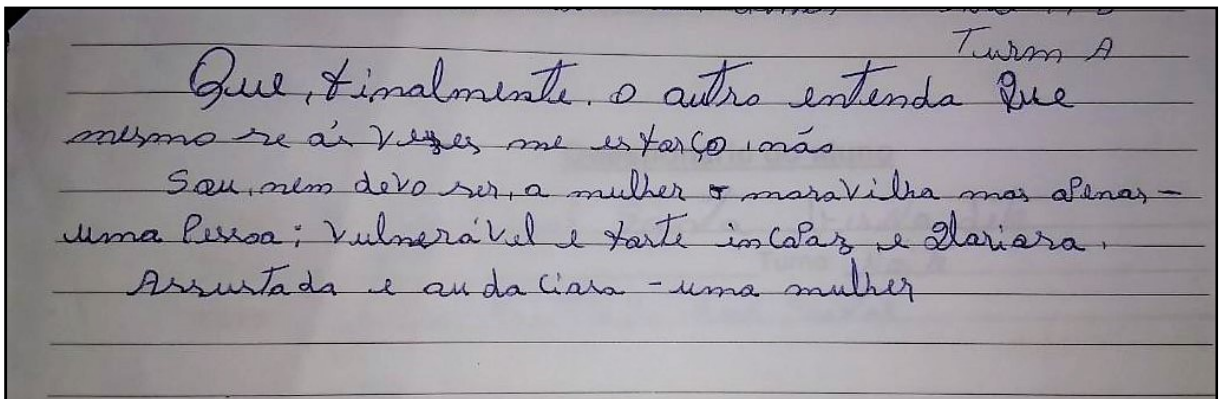 Turm A
Que, finalmente, o autro entenda que
mesmo se ás vezes me esforço, não
Sou, nem devo ser, a mulher maravilha mas apenas -
uma Pessoa; Vulnerável e forte incapaz e Glariosa,
Assustada e audaciosa - uma mulher